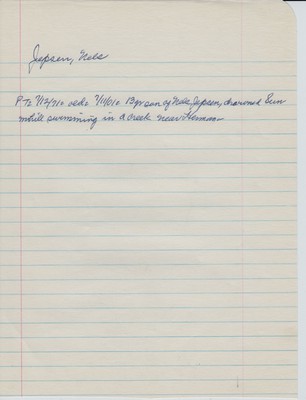 Jepsen, Nels
P To 7/12/710 13 yr son of Nels Jepsen, drowned Sun
while swimming in a creek near Herman